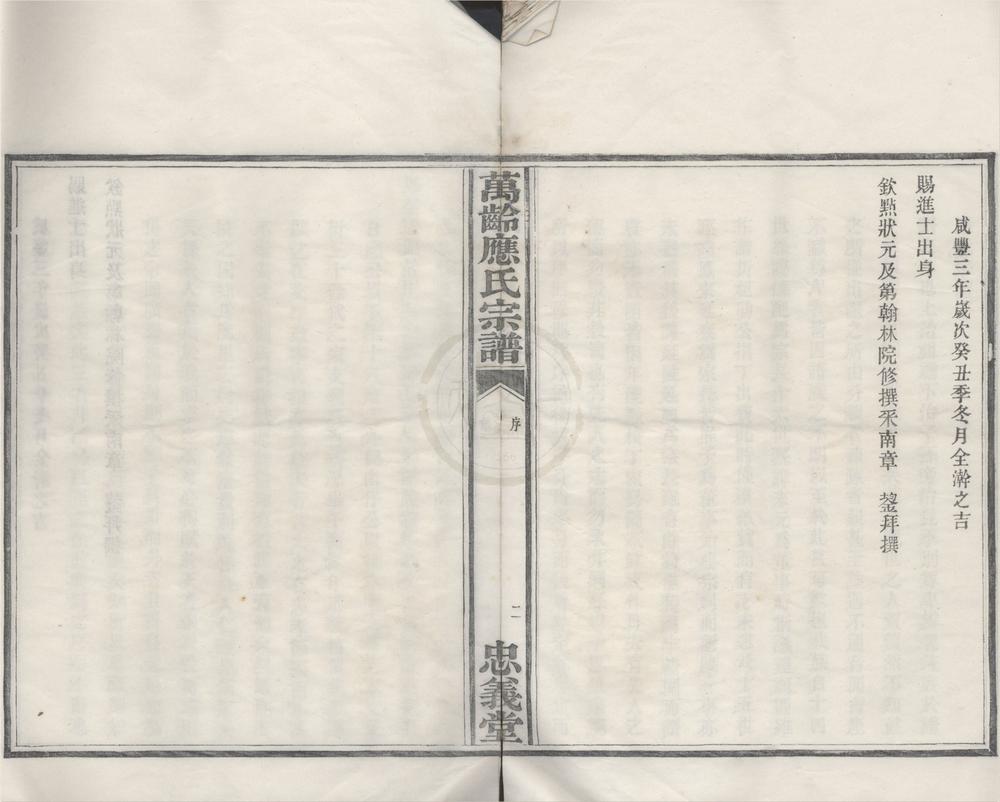 咸豐三年歲次癸丑季冬月全澣之吉
賜進士出身
欽點狀元及第翰林院修撰采南章　鋆拜撰
萬齡應氏宗譜
序
二
忠義堂